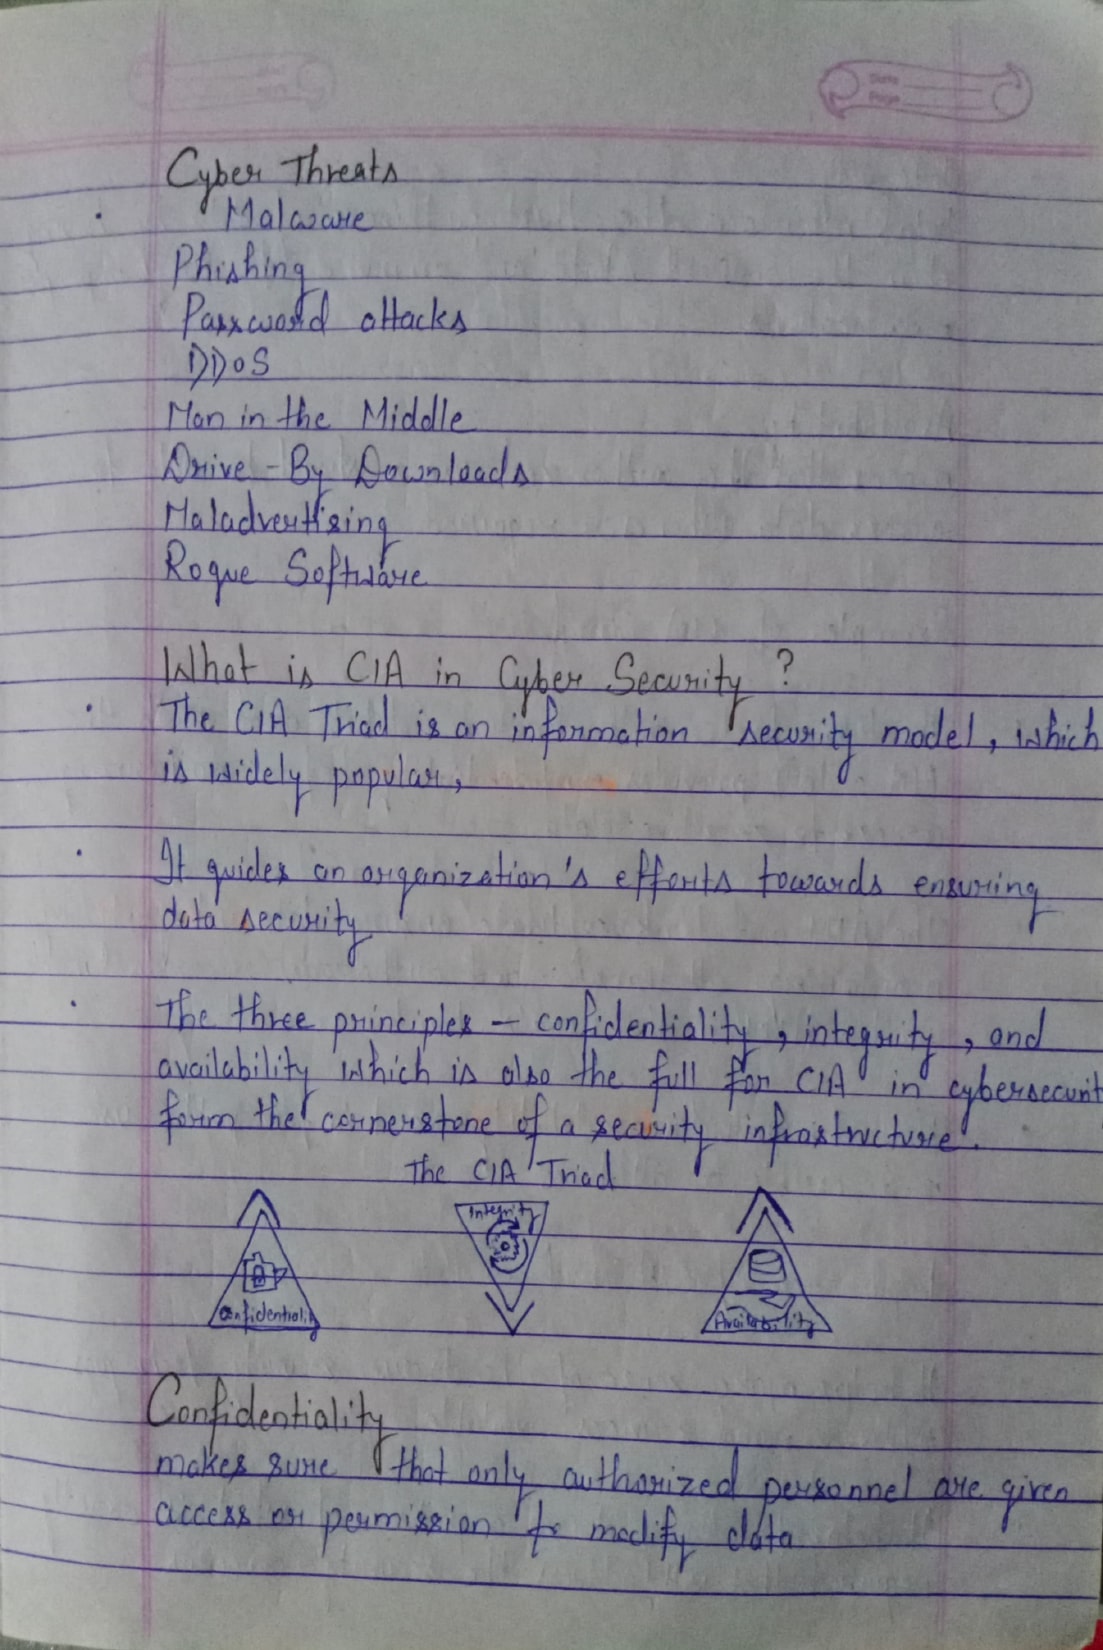 Date
Page
Cyber Threats
Malware
Phishing
Password attacks
DDoS
Man in the Middle
Drive-By Downloads
Maladvertising
Rogue Software
What is CIA in Cyber Security ?
The CIA Triad is an information security model, which
is widely popular,
It guides an organization's efforts towards ensuring
data security
The three principles - confidentiality, integrity, and
availability which is also the full for CIA in cybersecurit
form the cornerstone of a security infrastructure.
The CIA Triad
Integrity
Confidentiality
Availability
Confidentiality
makes sure that only authorized personnel are given
access or permission to modify data